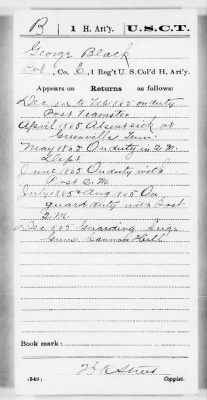 B | 1 H. Art'y. | U.S.C.T.
George Black
Pvt, Co. E, 1 Reg't U.S. Col'd H. Art'y.
Appears on Returns as follows:
Dec 1864 to Feb 1865 on duty
Post Teamster
April 1865 Absent sick at
Greenville Tenn.
May 1865 On duty in Q.M.
Dept
June 1865 On duty with
Post Q.M.
July 1865 & Aug 1865 On
guard duty with Post
Q.M.
Dec 1865 Guarding
Guns Cannon Hill
Book mark:
(546) Copyist.